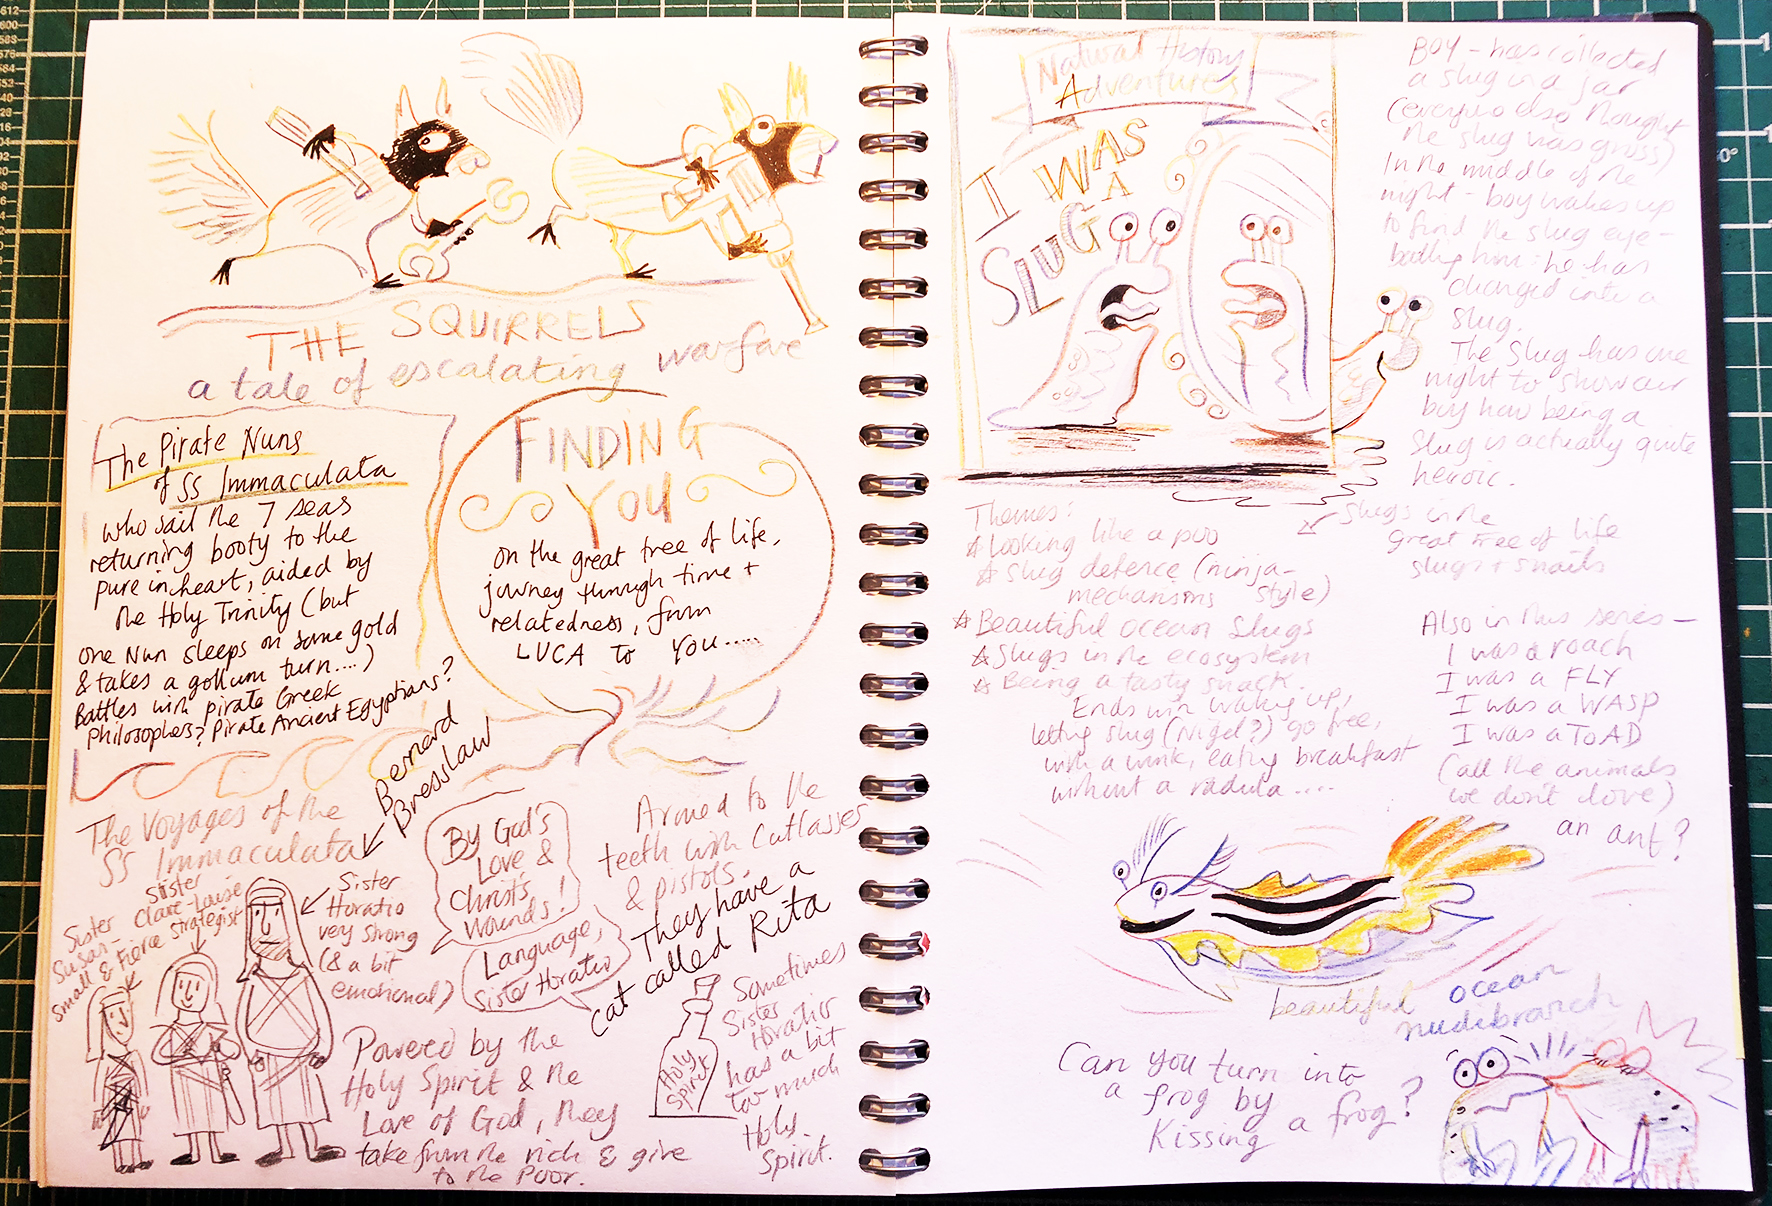 THE SQUIRRELS
a tale of escalating warfare
The Pirate Nuns
of SS Immaculata
who sail the 7 seas
returning booty to the
pure in heart, aided by
the Holy Trinity (but
one Nun sleeps on some gold
& takes a gollum turn....)
Battles with pirate Greek
philosophers? Pirate Ancient Egyptians?
FINDING
YOU
on the great tree of life,
journey through time +
relatedness, from
LUCA TO YOU.....
The Voyages of the
SS Immaculata
Bernard
Bresslaw
Sister
Susan-
small & fierce
Sister
Clare-Louise
strategist
Sister
Horatio
very strong
(& a bit
emotional)
By God's
Love &
Christ's
Wounds!
Language,
Sister Horatio
Armed to the
teeth with cutlasses
& pistols.
They have a
cat called Rita
Powered by the
Holy Spirit & the
Love of God, they
take from the rich & give
to the Poor.
Holy
Spirit
Sometimes
Sister
Horatio
has a bit
too much
Holy
Spirit.
Natural History
Adventures
I WAS
A
SLUG
BOY - has collected
a slug in a jar
(everyone else thought
the slug was gross)
In the middle of the
night - boy wakes up
to find the slug eye-
balling him: he has
changed into a
slug.
The slug has one
night to show our
boy how being a
slug is actually quite
heroic.
Themes:
Looking like a poo
Slug defence (ninja-
mechanisms style)
Beautiful ocean slugs
Slugs in the ecosystem
Being a tasty snack.
Ends with waking up,
letting slug (Nigel?) go free,
with a wink, eating breakfast
without a radula....
Slugs in the
great tree of life
slugs + snails
Also in this series -
I was a roach
I was a FLY
I was a WASP
I was a TOAD
(all the animals
we don't love)
an ant?
beautiful ocean
nudibranch
Can you turn into
a frog by
Kissing a frog?